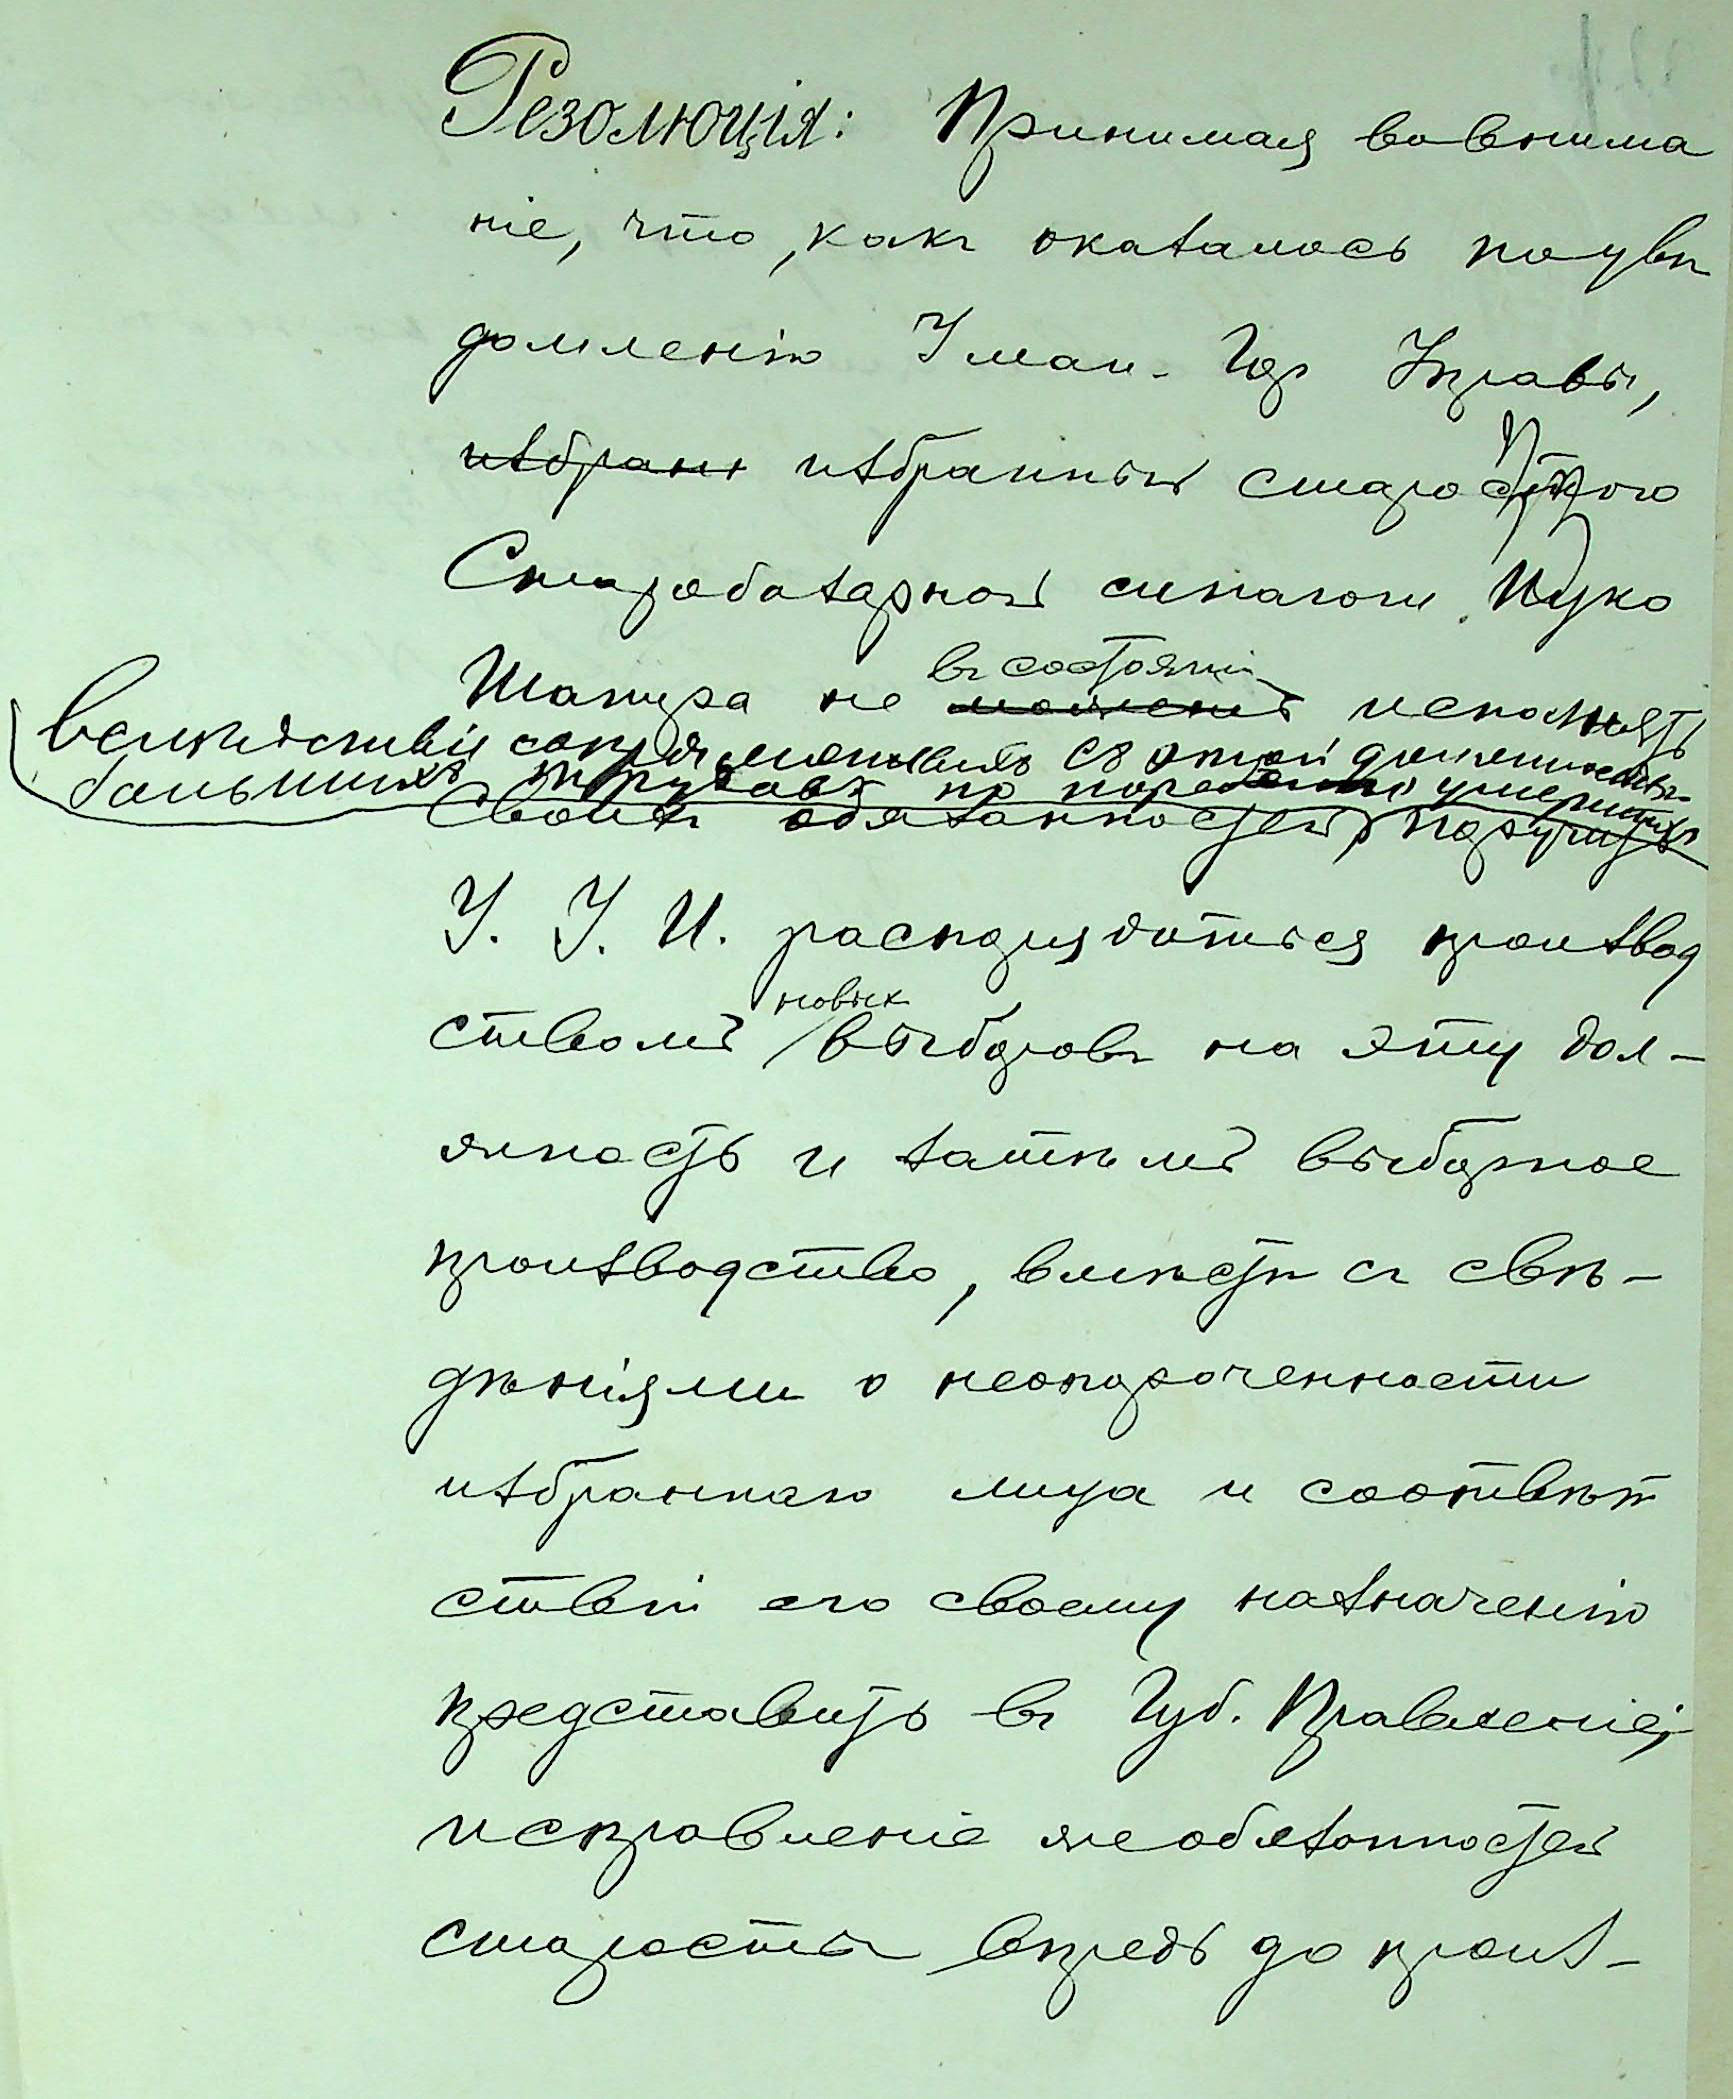 Резолюція: Принимая во внима
ніе, что, какъ оказалось по увѣ
домленію Уман. Гор Управы,
избран избранный старостою
Старобазарной синагоги Ицко
Шапира не въ состояніи исполнять
вслѣдствіи сопряженныхъ съ этой должностью
большихъ трудовъ по умершихъ
своихъ обязанностей, поручить
У. У. И. распорядиться производ
ствомъ новыхъ выборовъ на эту дол-
жность и затѣмъ выборное
производство, вмѣстѣ съ свѣ-
дѣніями о неопороченности
избраннаго лица и соотвѣт
ствіи его своему назначенію
представить въ Губ. Правленіе;
исправленіе же обязанностей
старосты впредь до произ-